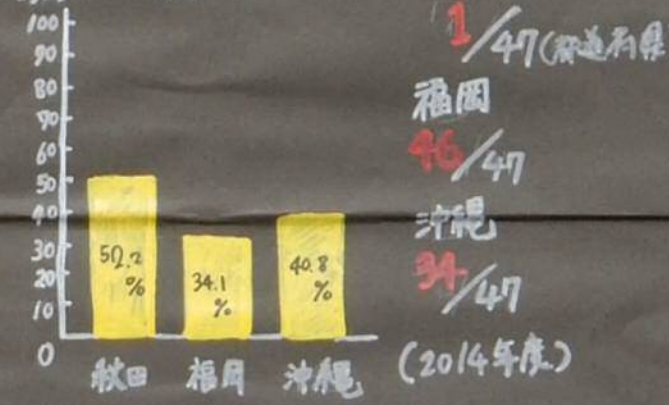 100
90
80
70
60
50
40
30
20
10
0
50.2
%
34.1
%
40.8
%
秋田
福岡
沖縄
1/47(都道府県
福岡
46/47
沖縄
34/47
(2014年度)